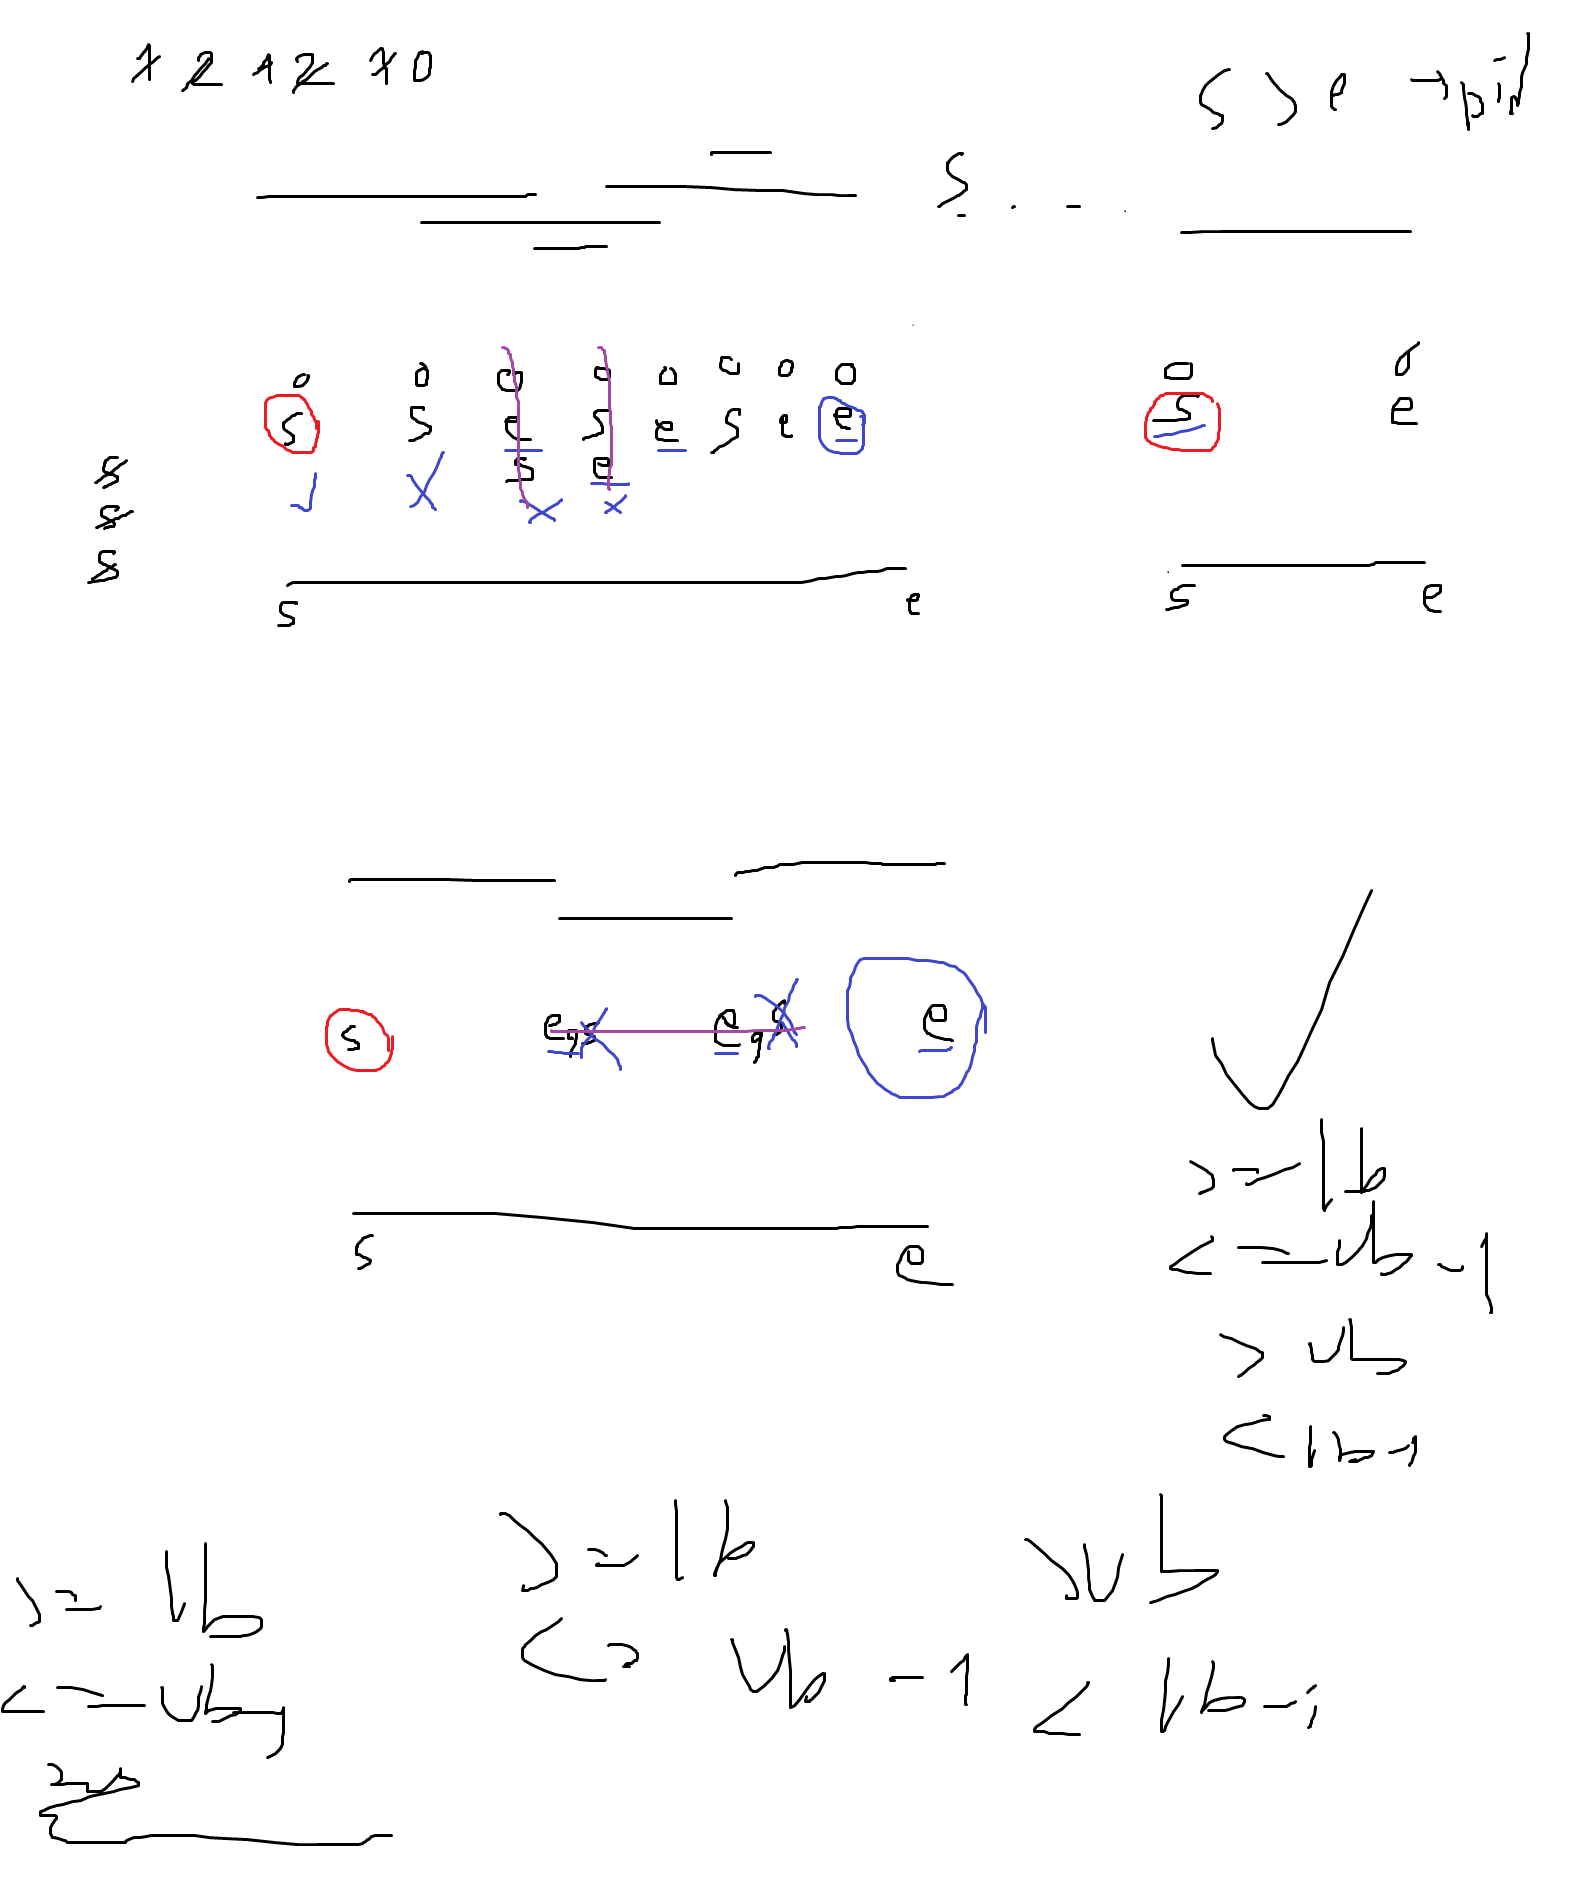 1 2 1 2 1 0
s > e → pid
S . - .
o o o o o o o o o o
s s e s e s e e s e
s e
s
s
s
s e s e
s e,s e,s e
s e
>= lb
<= ub - 1
> ub
< lb-1
>= lb >= lb > ub
<= ub-1 <= ub - 1 < lb-1